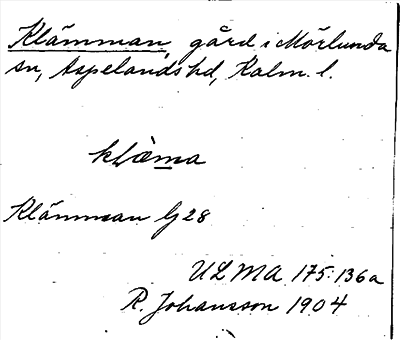 Klämman, gård i Mörlunda
sn, Aspelands hd, Kalm. l.
klæma
Klämman G 28
ULMA 175:136a
R. Johansson 1904